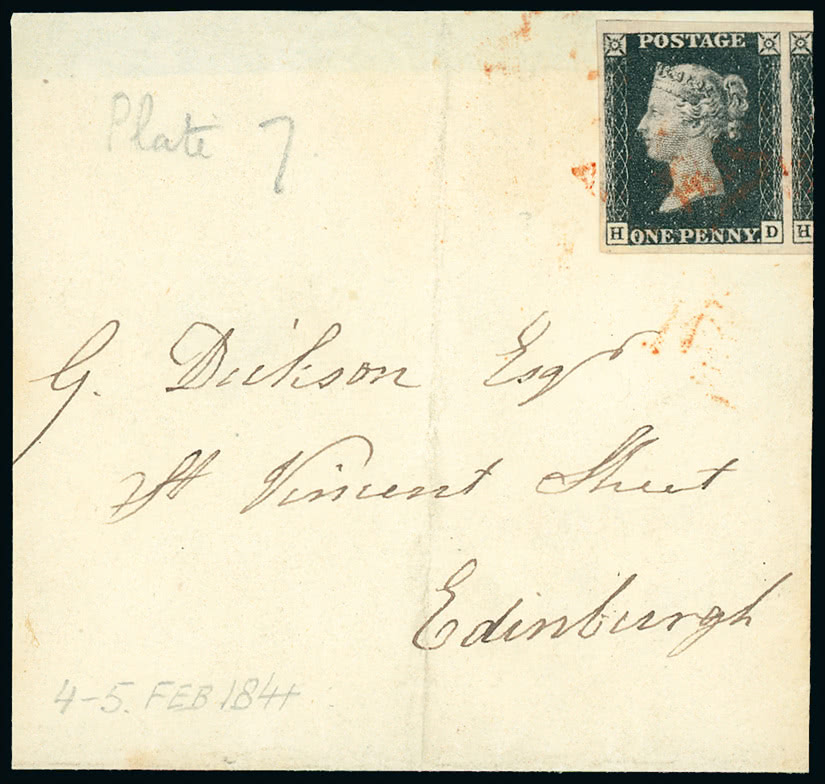 POSTAGE
H ONE PENNY. D H
Plate 7
G. Dickson Esqr
St Vincent Street
Edinburgh
4-5. FEB 1841